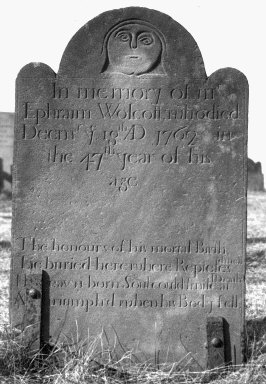 In memory of mr
Ephraim Wolcott who died
Decmr ye 19th AD 1762 in
the 47th year of his
age
The honours of his mortal Birth
Lie buried here where Reptiles
born Soul could
triumph'd when his Body fell